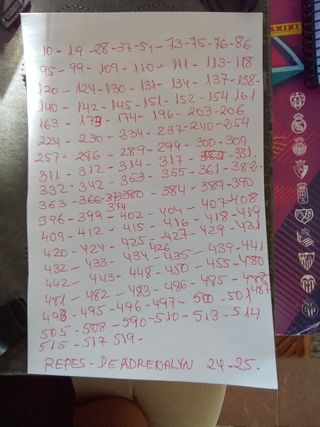 10 - 19 - 28 - 37 - 51 - 73 - 75 - 76 - 86
95 - 99 - 109 - 110 - 111 - 113 - 118
120 - 124 - 130 - 131 - 134 - 137 - 138 -
140 - 142 - 145 - 151 - 152 - 154 161
163 - 173 - 174 - 196 - 203 - 206
224 - 230 - 234 - 237 - 240 - 254
257 - 286 - 289 - 299 - 300 - 309
311 - 312 - 314 - 317 - 331 -
332 - 342 - 353 - 355 - 361 - 382 -
363 - 366 - 373 380 - 384 - 389 - 390
374
396 - 399 - 402 - 404 - 407 - 408
409 - 412 - 415 - 416 - 418 - 419
420 - 424 - 425 - 427 - 429 - 431
426
432 - 433 - 434 - 435 - 439 - 441
442 - 443 - 448 - 450 - 455 - 480
481 - 482 - 483 - 486 - 485 - 488
487
493 - 495 - 496 - 497 - 500 - 501
505 - 508 - 590 - 510 - 513 - 514
515 - 517 519 -
REPES - DE ADRENALYN 24 - 25 .